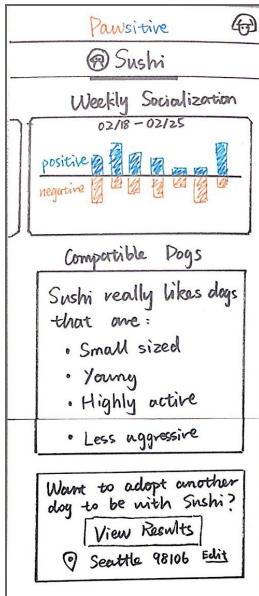 Pawsitive
Sushi
Weekly Socialization
02/18 - 02/25
positive
negative
Compatible Dogs
Sushi really likes dogs
that are:
• Small sized
• Young
• Highly active
• Less aggressive
Want to adopt another
dog to be with Sushi?
View Results
Seattle 98106 Edit